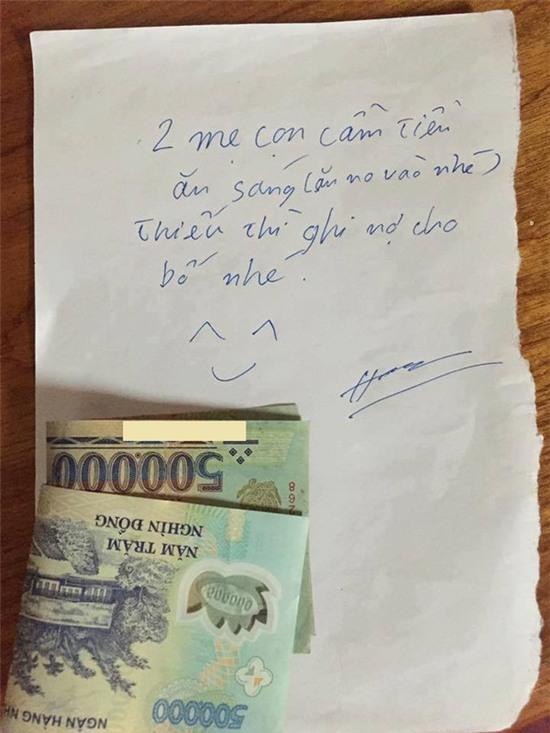 2 mẹ con cầm tiền
ăn sáng (ăn no vào nhé)
thiếu thì ghi nợ cho
bố nhé.
500.000
268
NĂM TRĂM
NGHÌN ĐỒNG
NGÂN HÀNG NH
500.000